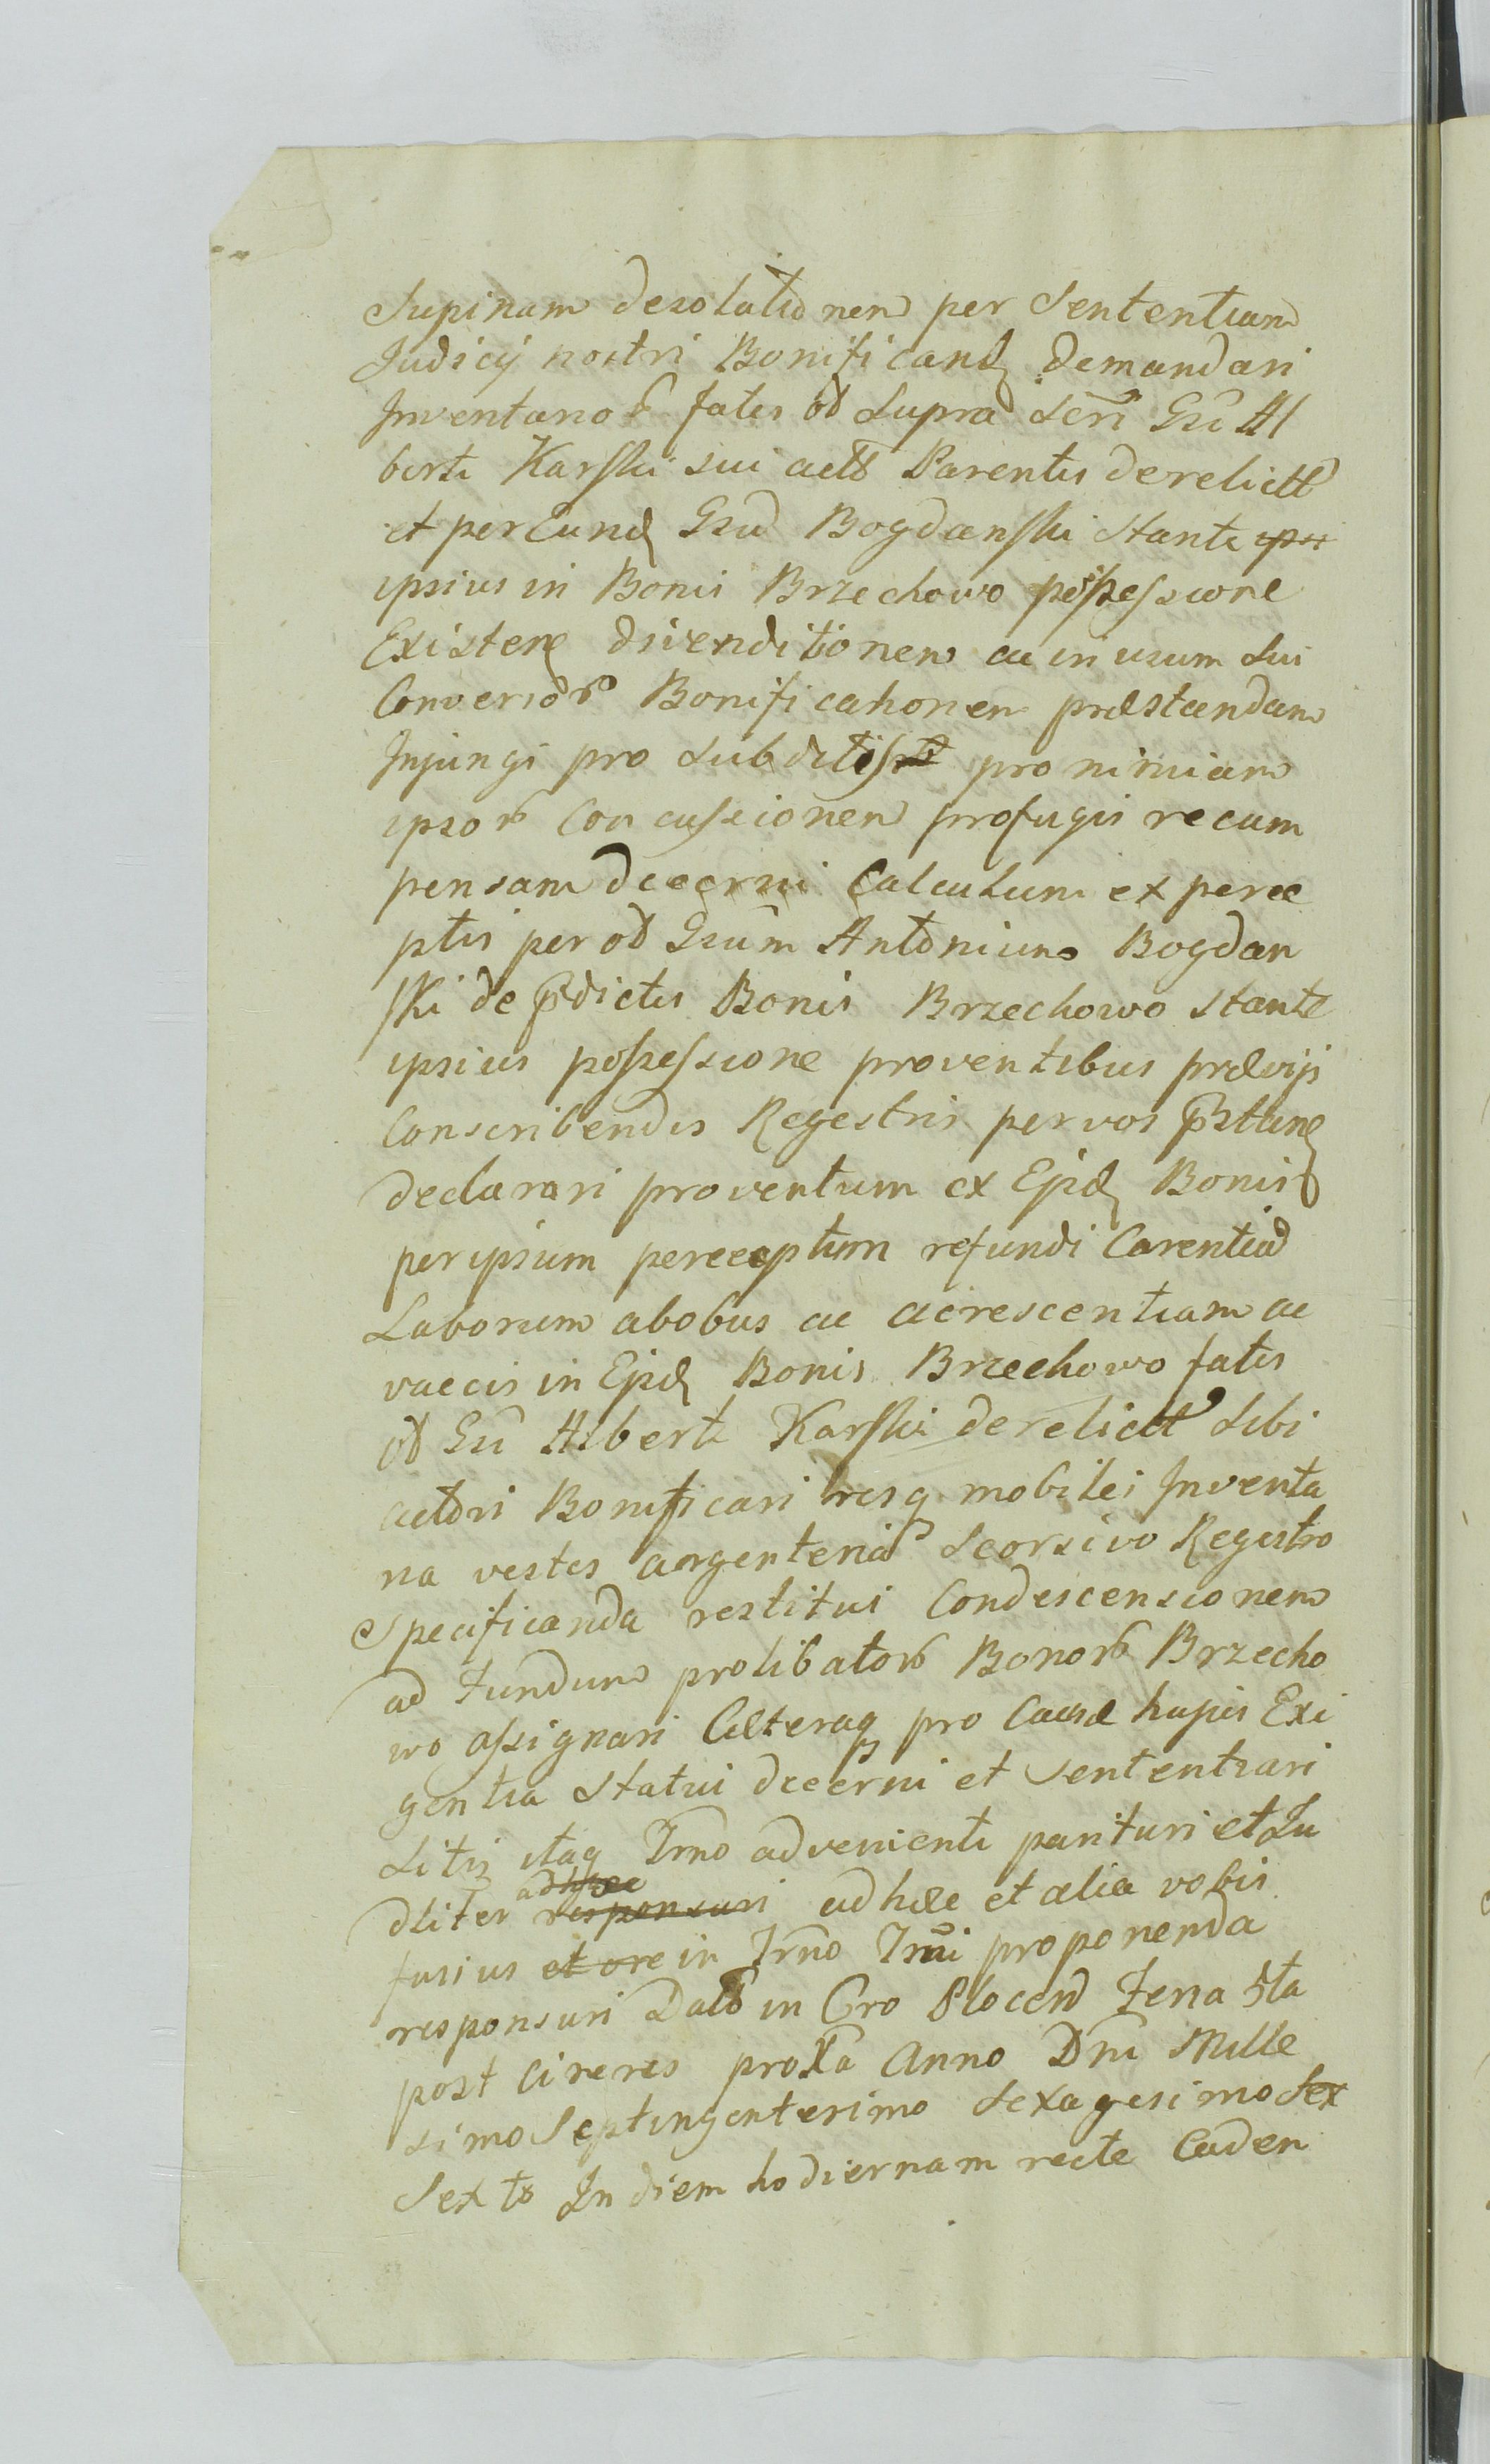 Supinam desolationem per Sententiam
Judicij nostri Bonificand demandari
Inventarior fatis od supra Gsi Al
berti Karski sui actor Parentis derelict
et per Eund Gsum Bogdanski stante ipsi
ipsius in Bonis Brzechowo possessione
Existen divenditionem ac in usum sui
Conversor Bonificationem præstandam
Injungi pro subditis pro nimiam
ipsor Concussionem profugis recum
pensam decerni Calculum ex perce
ptis per od Gsum Antonium Bogdan
ski de pdictis Bonis Brzechowo stante
ipsius possessione proventibus prævijs
Conscribendis Regestris per vos pstan
declarari proventum ex Ejsd Bonis
per ipsum perceptum refundi Carentiam
Laborum abobus ac acrescentiam a
vaccis in Ejsd Bonis Brzechowo fatis
od Gsi Alberti Karski derelict sibi
actori Bonificari resq mobiles Inventa
ria vestes argenteria Seorsivo Regestro
Specificanda restitui Condescensionem
ad Fundum prolibator Bonor Brzecho
wo assignari Cæteraq pro Causæ hujus Exi
gentia statui decerni et Sententiari
sitis itaq Trno advenienti parituri et Ju
dliter responsuri adhæc ad hæc et alia vobis
fusius et ore in Trno Trmi proponenda
responsuri Dat in Cro Plocen Feria 5ta
post Cineres proxa Anno Dni Mille
simo Septingentesimo Sexagesimo Sex
Sexto In diem hodiernam recte Caden